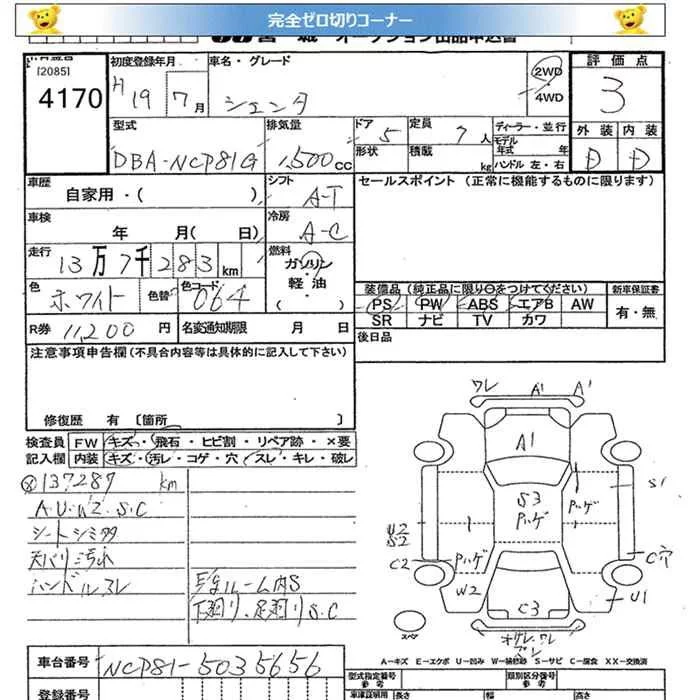 完全ゼロ切りコーナー
[2085]
4170
初度登録年月
H19 7月
車名・グレード
シエンタ
2WD
4WD
評価点
3
外装 内装
D D
型式
DBA-NCP81G
排気量
1,500cc
ドア 5
形状
定員 7人
積載 kg
ディーラー・並行
モデル年式 年
ハンドル 左・右
車歴
自家用・( )
シフト
A-T
セールスポイント (正常に機能するものに限ります)
車検
年 月( 日)
冷房
A-C
走行
13万7千283km
燃料
ガソリン
軽油
( )
色
ホワイト
色替
色コード
064
装備品(純正品に限り○をつけてください)
新車保証書
PS PW ABS エアB AW
SR ナビ TV カワ
有・無
R券 11,200円
名変通知期限 月 日
後日品
注意事項申告欄(不具合内容等は具体的に記入して下さい)
修復歴 有 〔箇所 〕
検査員
記入欄
FW キズ・飛石・ヒビ割・リペア跡・×要
内装 キズ・汚レ・コゲ・穴・スレ・キレ・破レ
137287 km
A.U.W2.S.C
シートシミ多
天バリ汚れ
ハンドルスレ
ルーム内S
下廻り、足廻りS.C
ワレ A1 A1
A1
S3
Pハゲ
Pハゲ
S1
U2
S2
Pハゲ
C2
W2
C穴
U1
C3
スペア
A－キズ E－エクボ U－凹み W－補修跡 S－サビ C－腐食 XX－交換済
車台番号
NCP81-5035656
登録番号
型式指定番号
類別区分番号
参考
長さ 幅 高さ